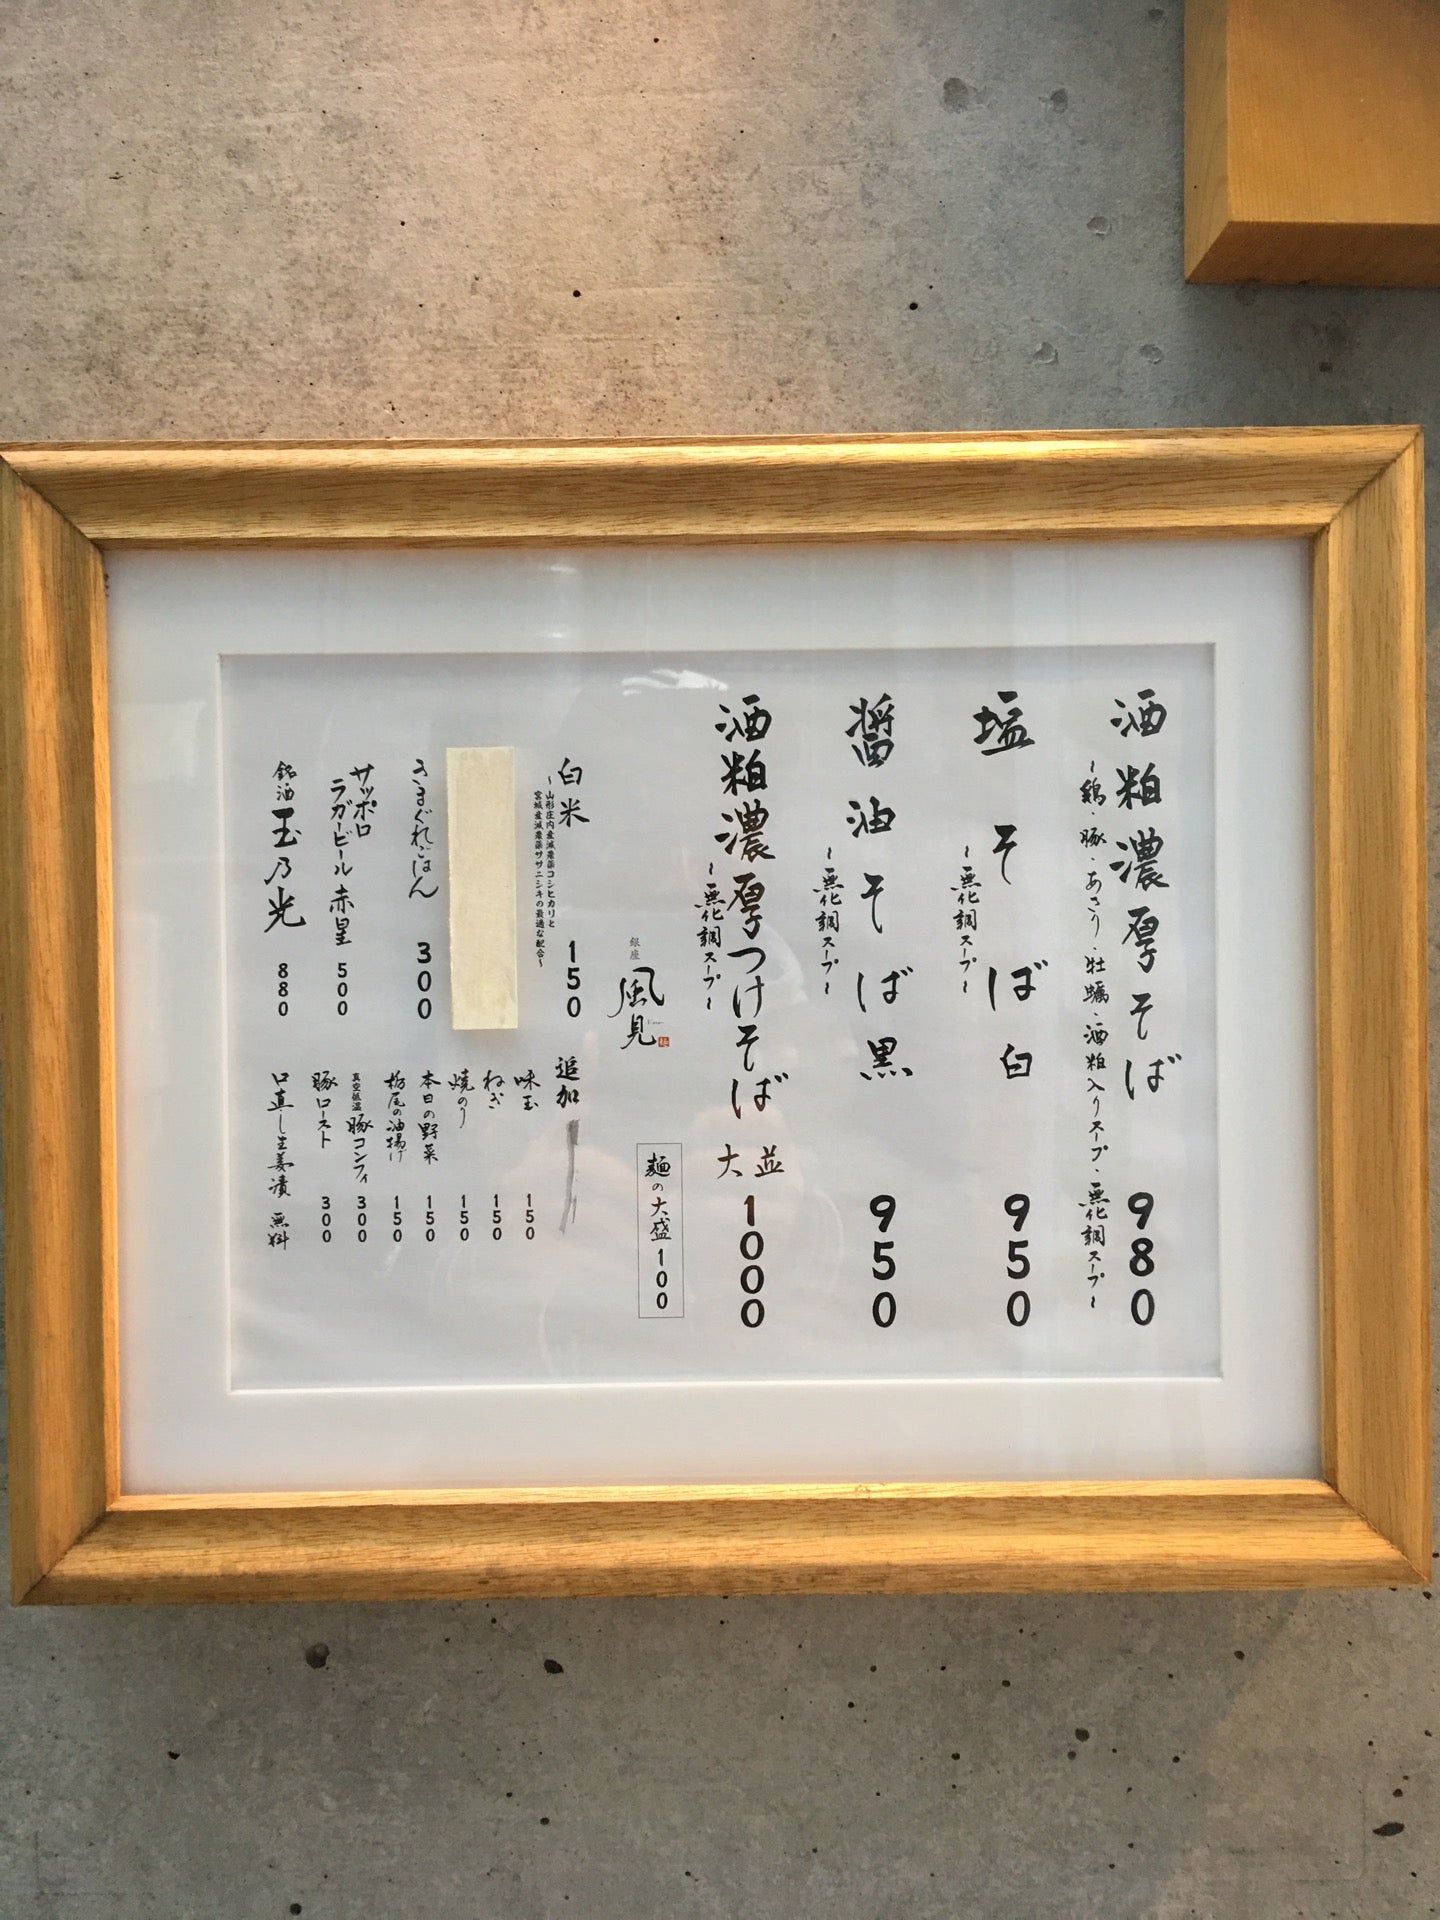 酒粕濃厚そば 980
〜鶏・豚・あさり・牡蠣・酒粕入りスープ・無化調スープ〜
塩そば白 950
〜無化調スープ〜
醤油そば黒 950
〜無化調スープ〜
酒粕濃厚つけそば 並大 1000
〜無化調スープ〜
麺の大盛 100
銀座 風見
白米 150
〜山形庄内産減農薬コシヒカリと
宮城産減農薬ササニシキの最適な配合〜
きまぐれごはん 300
サッポロ
ラガービール 赤星 500
銘酒 玉乃光 880
追加
味玉 150
ねぎ 150
焼のり 150
本日の野菜 150
栃尾の油揚げ 150
真空低温 豚コンフィ 300
豚ロースト 300
口直し生姜漬 無料